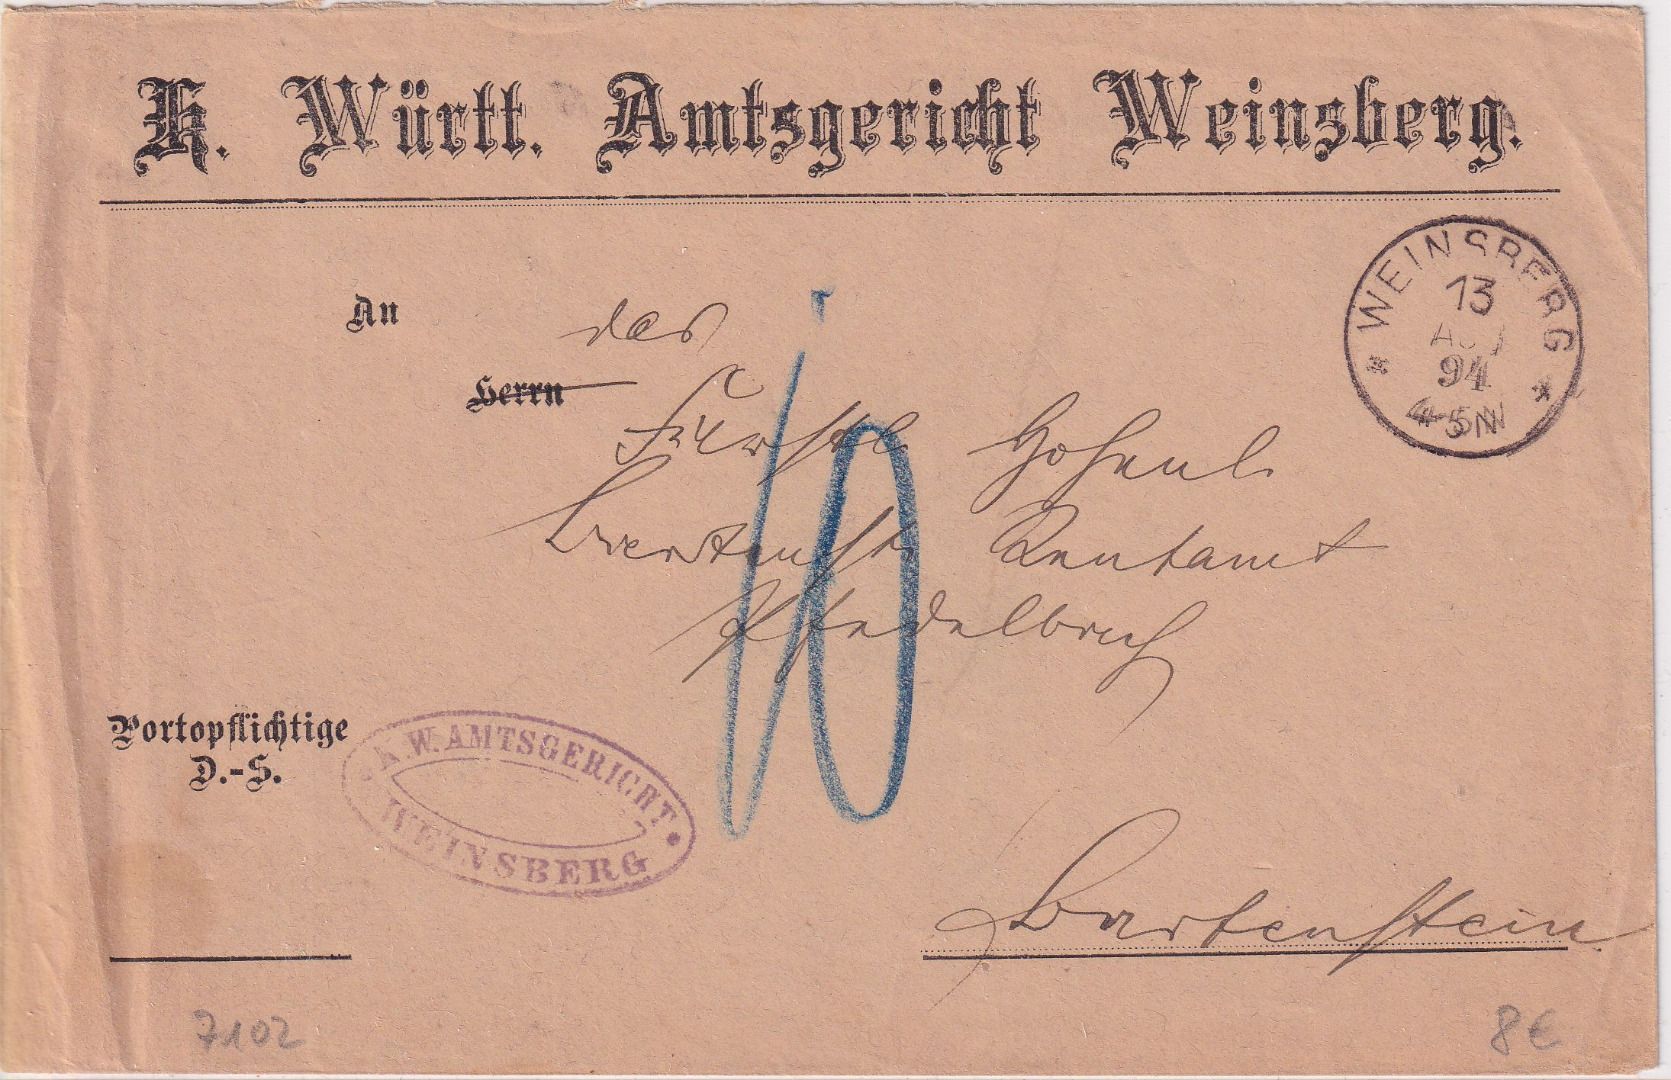 K. Württ. Amtsgericht Weinsberg.
WEINSBERG
13
AUG
94
4-5N
An
das
Herrn
Fürstl. Hohenl.
Bartenst. Rentamt
Pfedelbach
10
Portopflichtige
D.-S.
K.W. AMTSGERICHT
WEINSBERG
Bartenstein
7102
8€